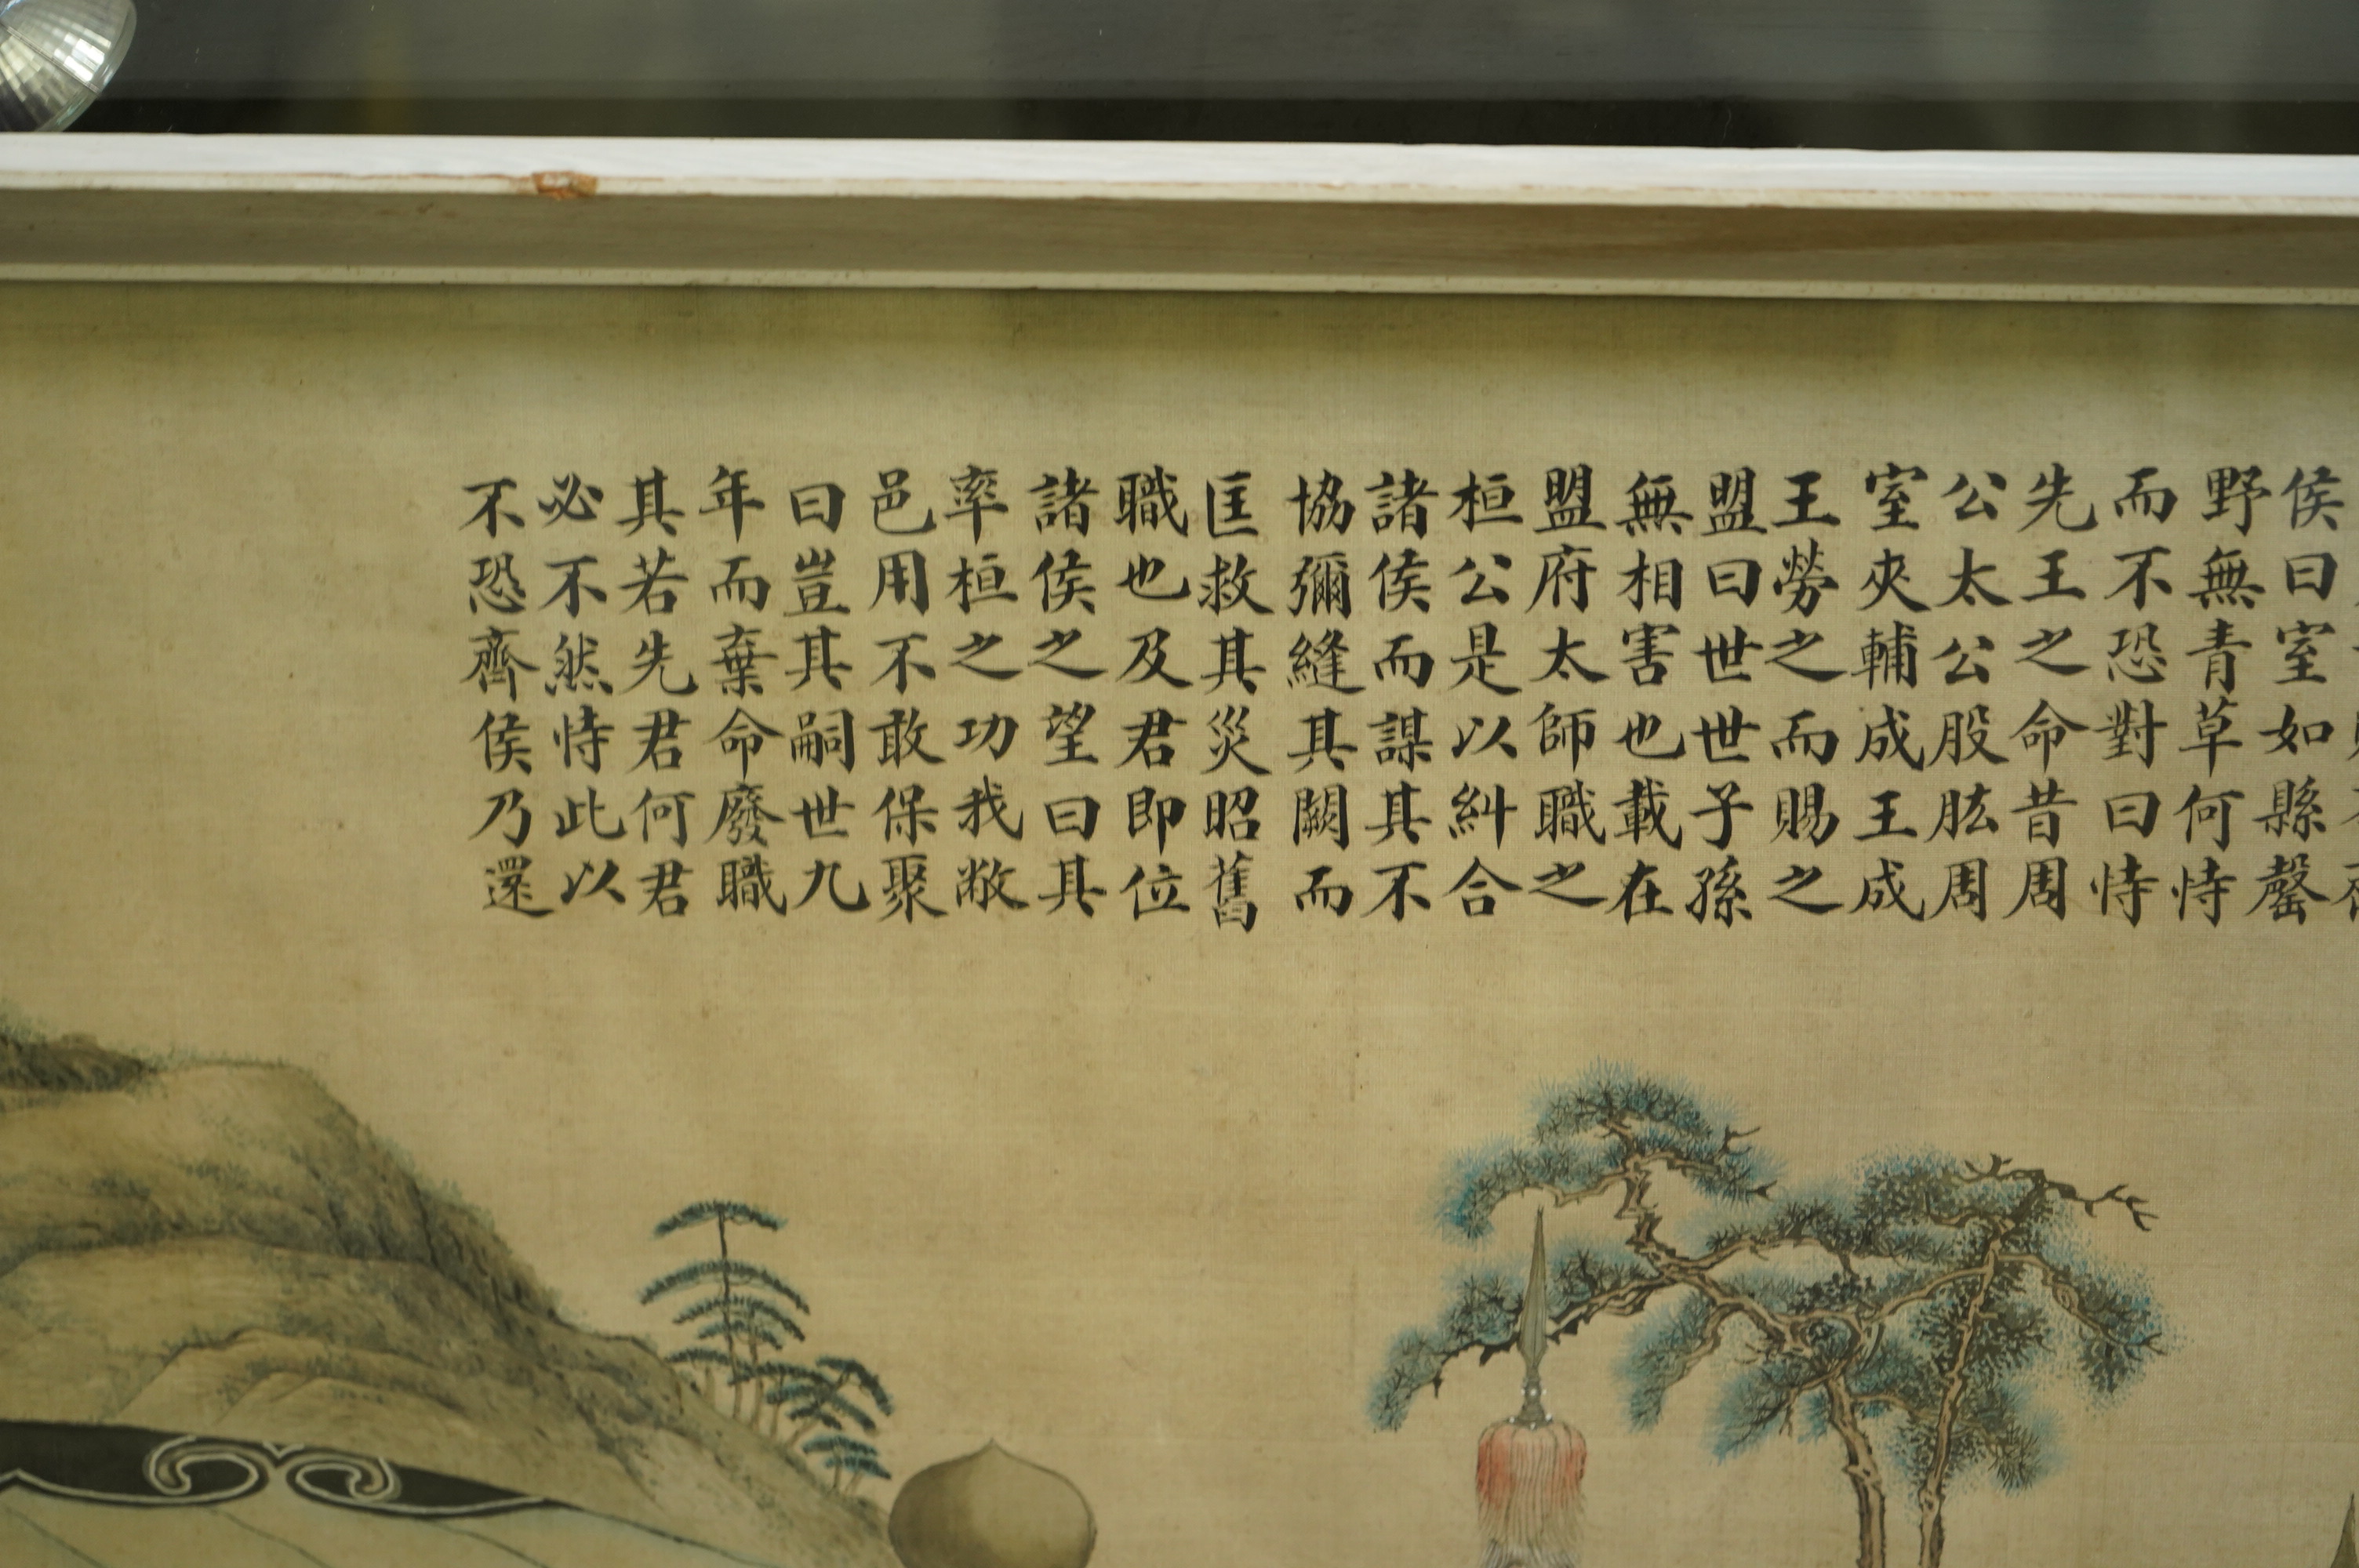 侯曰室如縣罄
野無青草何恃
而不恐對曰恃
先王之命昔周
公太公股肱周
室夾輔成王成
王勞之而賜之
盟曰世世子孫
無相害也載在
盟府太師職之
桓公是以糾合
諸侯而謀其不
協彌縫其闕而
匡救其災昭舊
職也及君即位
諸侯之望曰其
率桓之功我敝
邑用不敢保聚
曰豈其嗣世九
年而棄命廢職
其若先君何君
必不然恃此以
不恐齊侯乃還